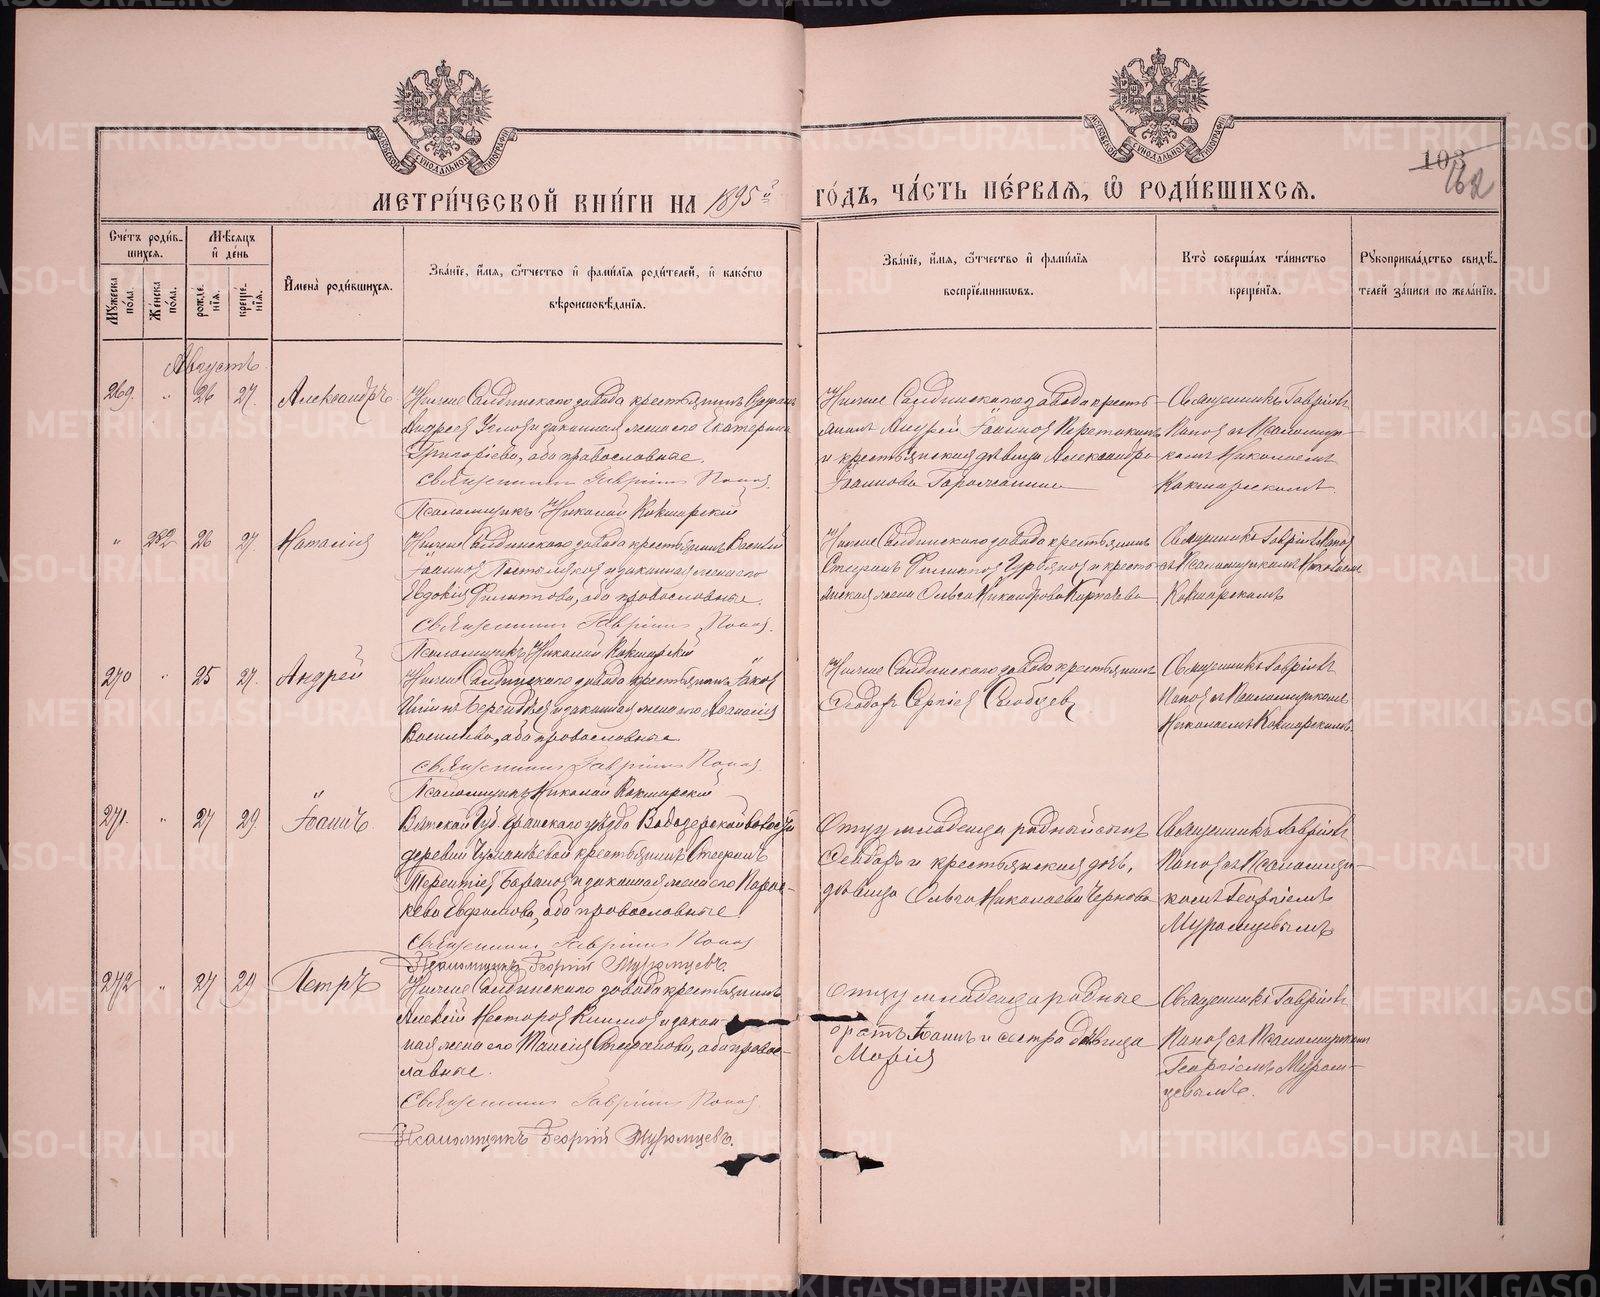 МЕТРИ́ЧЕСКОЙ КНИ́ГИ НА 1895й ГО́ДЪ, ЧА́СТЬ ПЕ́РВАѦ, Ѡ РОДИ́ВШИХСѦ.
103
162
Сче́тъ роди́в-
шихсѧ.
Мꙋжеска по́ла.
Же́нска по́ла.
Мѣ́сѧцъ
и҆ де́нь
рожде́нїѧ.
креще́нїѧ.
И҆мена̀ роди́вшихсѧ.
Зва́нїе, и҆́мѧ, ѻ҆́тчество и҆ фами́лїѧ роди́телей, и҆ како́гѡ
вѣроисповѣ́данїѧ.
Зва́нїе, и҆́мѧ, ѻ҆́тчество и҆ фами́лїѧ
воспрїе́мникѡвъ.
Кто̀ соверша́лъ та́инство
креще́нїѧ.
Рꙋкоприкла́дство свидѣ́-
телей за́писи по жела́нїю.
Августъ
269. " 26 27. Александръ
Нижне Салдинскаго завода крестьянинъ
Андреев и законная жена его Екатерина
Григорiева, оба православные.
Священникъ Гаврiилъ Попов.
Псаломщикъ Николай Кокшарскiй
Нижне Салдинскаго завода кресть-
янинъ Андрей Iоаннов
и крестьянская дѣвица Александра
Iоаннова
Священникъ Гаврiилъ
Попов съ Псаломщи-
комъ Николаемъ
Кокшарскимъ.
" 282 26 27. Наталiя
Нижне Салдинскаго завода крестьянинъ Василiй
Iоаннов и законная жена его
Евдокiя Филиппова, оба православные.
Священникъ Гаврiилъ Попов.
Псаломщикъ Николай Кокшарскiй
Нижне Салдинскаго завода крестьянинъ
Стефанъ Филиппов Гурьянов и кресть-
янская жена Ольга Никандрова
Священникъ Гаврiилъ Попов
съ Псаломщикомъ Николаемъ
Кокшарскимъ
270 " 25 27. Андрей
Нижне Салдинскаго завода крестьянинъ Iаков
и законная жена его Афанасiя
Василiева, оба православные.
Священникъ Гаврiилъ Попов.
Псаломщикъ Николай Кокшарскiй
Нижне Салдинскаго завода крестьянинъ
Феодоръ Сергiев
Священникъ Гаврiилъ
Попов съ Псаломщикомъ
Николаемъ Кокшарскимъ.
271. " 27 29. Iоаннъ.
Вятской Губ. уѣзда волости
деревни крестьянинъ Стефанъ
Терентiев Баранов и законная жена его Парас-
кева Евфимова, оба православные
Священникъ Гаврiилъ Попов
Псаломщикъ Георгiй Муромцевъ.
Отцу младенца родный сынъ
Феодоръ и крестьянская дочь,
дѣвица Ольга Николаева Чернова
Священникъ Гаврiилъ
Попов съ Псаломщи-
комъ Георгiемъ
Муромцевымъ
272 " 27 29. Петръ
Нижне Салдинскаго завода крестьянинъ
Алексiй Несторов Климов и закон-
ная жена его Таисiя Стефанова, оба право-
славные.
Священникъ Гаврiилъ Попов.
Псаломщикъ Георгiй Муромцевъ.
Отцу младенца родные
братъ Iоаннъ и сестра дѣвица
Марiя
Священникъ Гаврiилъ
Попов съ Псаломщикомъ
Георгiемъ Муром-
цевымъ.
METRIKI.GASO-URAL.RU